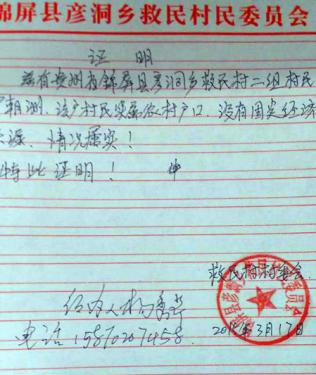 锦屏县彦洞乡救民村民委员会
证 明
兹有贵州省锦屏县彦洞乡救民村二组村民
朝洲、该户村民实属农村户口、没有固定经济
来源、情况属实！
特此证明！
救民村村委会
经办人杨秀
电话15870207458
2015年3月17日